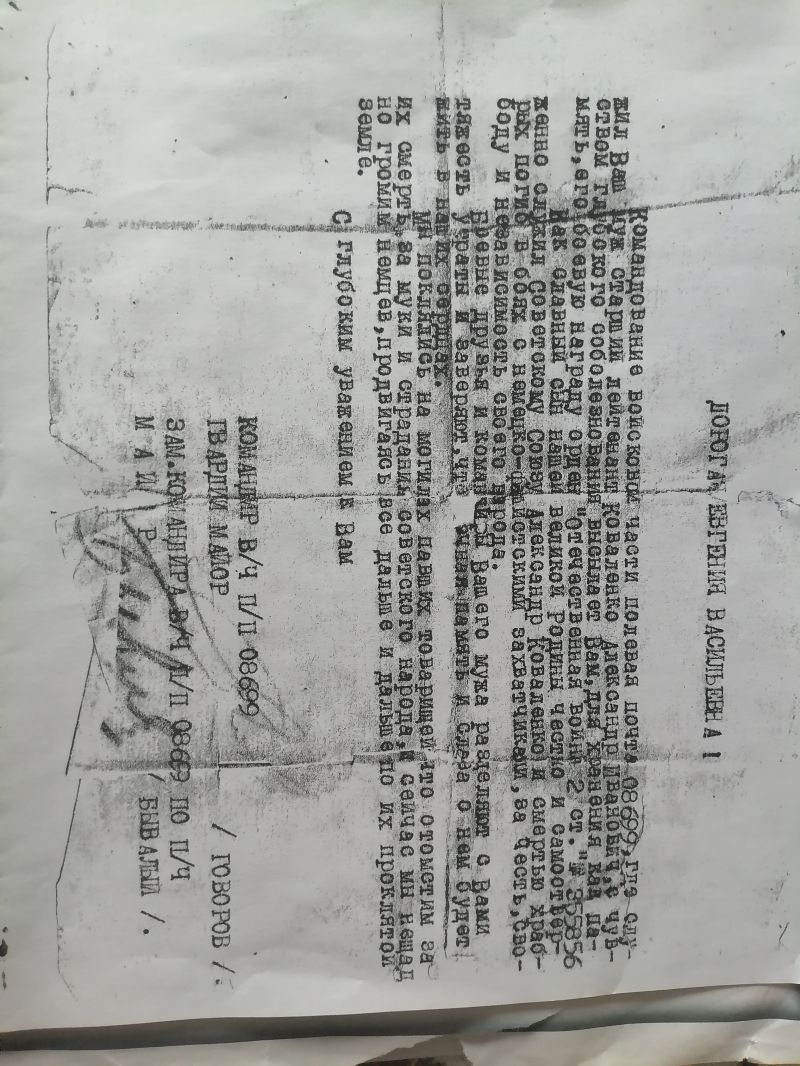 ДОРОГАЯ ЕВГЕНИЯ ВАСИЛЬЕВНА !
Командование войсковой части полевая почта 08699, где слу-
жил Ваш муж старший лейтенант Коваленко Александр Иванович, с чув-
ством глубокого соболезнования высылает Вам, для хранения как па-
мять, его боевую награду орден "Отечественная война 2 ст." № 355856
Как славный сын нашей великой родины честно и самоотвер-
женно служил Советскому Союзу Александр Коваленко и смертью храб-
рых погиб в боях с немецко-фашистскими захватчиками, за честь, сво-
боду и независимость своего народа.
Боевые друзья и командиры Вашего мужа разделяют с Вами
тяжесть утраты и заверяют, что память и слава о нем будет
жить в наших сердцах.
Мы поклялись на могилах павших товарищей что отометим за
их смерть, за муки и страдания советского народа, и сейчас мы нещад
но громим немцев, продвигаясь все дальше и дальше по их проклятой
земле.
С глубоким уважением к Вам
КОМАНДИР В/Ч П/П 08699
ГВАРДИИ МАЙОР / ГОВОРОВ /.
ЗАМ. КОМАНДИРА В/Ч П/П 08669 ПО П/Ч
М А Й О Р / БЫВАЛЫЙ /.